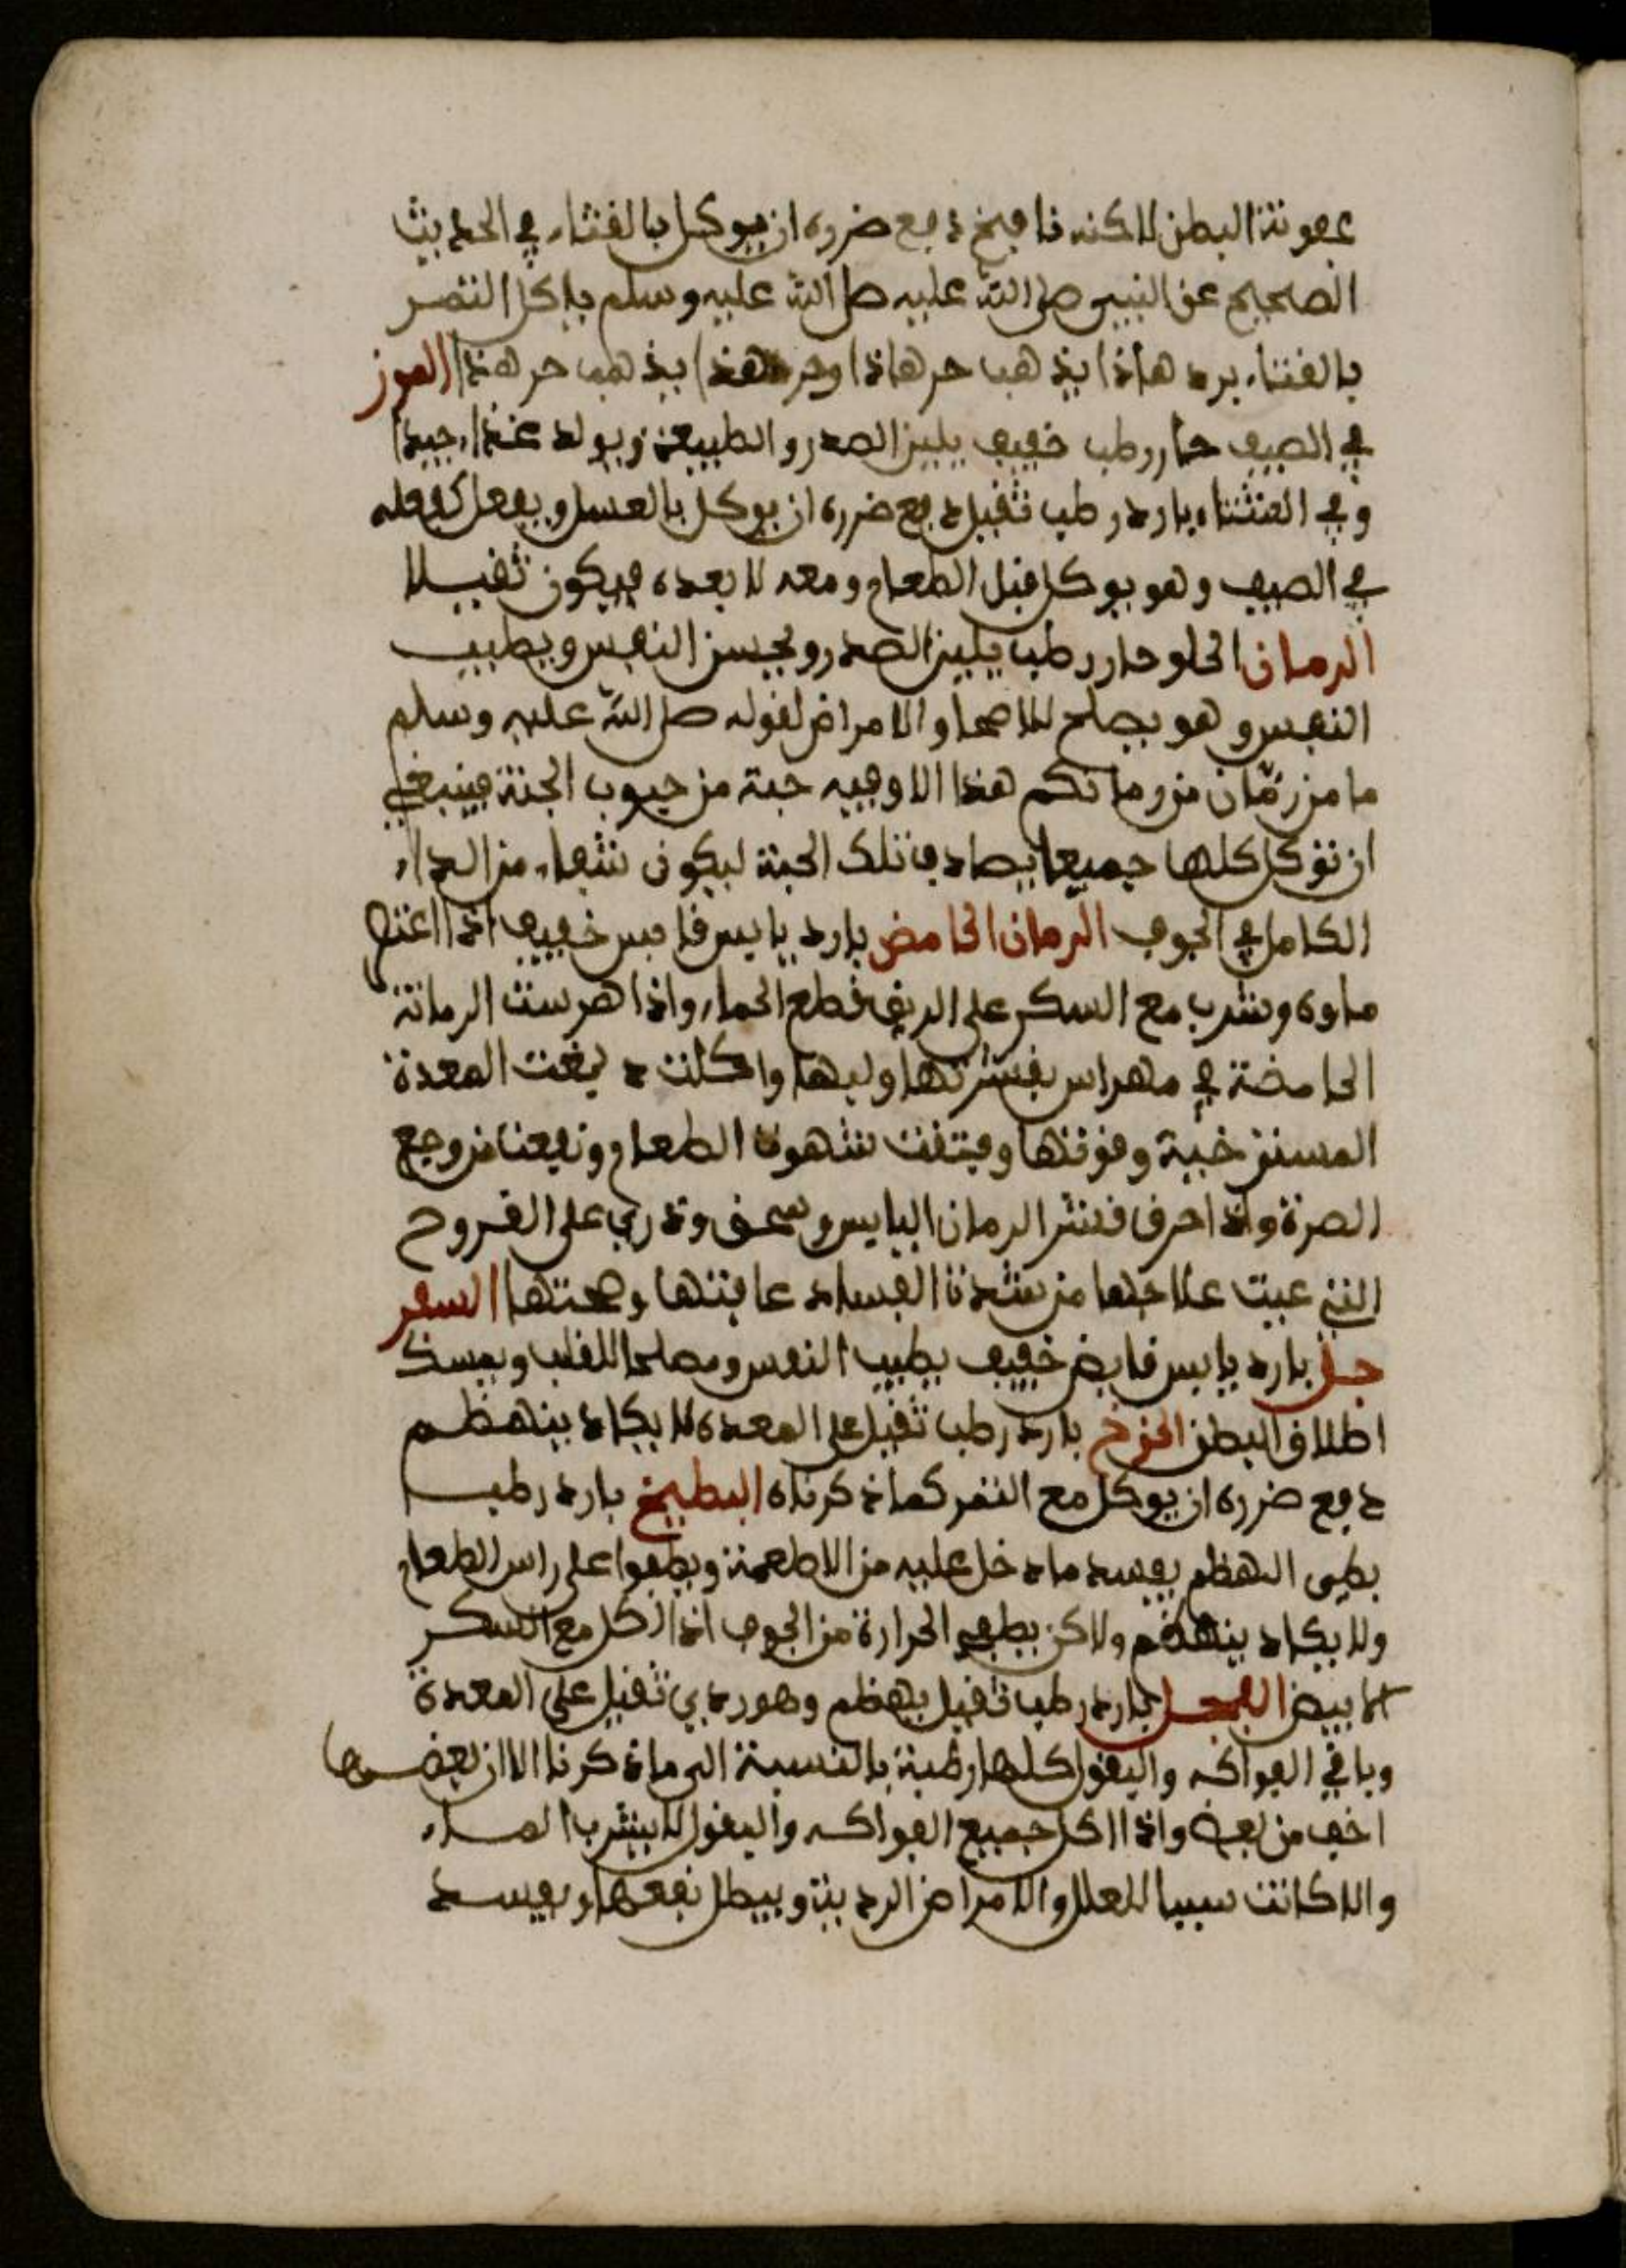 عفونة البطن لاكنه نافخ دفع ضرره ان يوكل بالقثاء في الحديث
الصحيح عن النبي صلى الله عليه صلى الله عليه وسلم ياكل التمر
بالقثاء برد هاذا يذهب حر هاذا وحر هذا يذهب حر هذا الموز
في الصيف حار رطب خفيف يلين الصدر والطبيعة ويولد غذاء جيدا
وفي الشتاء بارد رطب ثقيل دفع ضرره ان يوكل بالعسل ويفعل كفعله
في الصيف وهو يوكل قبل الطعام ومعه لا بعده فيكون ثقيلا
الرمان الحلو حار رطب يلين الصدر ويحسن النفس ويطيب
النفس وهو يصلح للاصحا والامراض لقوله صلى الله عليه وسلم
ما من رمان من رمانكم هذا الا وفيه حبة من حبوب الجنة فينبغي
ان توكل كلها جميعا يصادف تلك الحبة ليكون شفاء من الداء
الكامل في الجوف الرمان الحامض بارد يابس خفيف اذا اعتصر
ماوه وشرب مع السكر على الريق قطع الحماء واذا هرست الرمانة
الحامضة في مهراس بقشرتها ولبها واكلت دبغت المعدة
المسترخية وقوتها وفتقت شهوة الطعام ونفعت من وجع
الصرة واذا احرق قشر الرمان اليابس وسحق وذري على القروح
التي عيت علاجها من شدة الفساد عافتها وصحتها السفر
جل بارد يابس قابض خفيف يطيب النفس ومصلحا للقلب ويمسك
اطلاق البطن الخوخ بارد رطب ثقيل على المعدة لا يكاد ينهظم
دفع ضرره ان يوكل مع التمر كما ذكرناه البطيخ بارد رطب
بطيى الهظم يفسد ما دخل عليه من الاطعمة ويطفوا على راس الطعام
ولا يكاد ينهظم ولاكن يطفي الحرارة من الجوف اذا اكل مع السكر
الابيض الفجل بارد رطب ثقيل يهظم وهو ردي ثقيل على المعدة
وباقي الفواكه والبقول كلها رطبة بالنسبة الى ما ذكرنا الا ان بعضها
اخف من بعض واذا اكل جميع الفواكه والبقول لا يشرب الماء
والا كانت سببا للعلل والامراض الردية ويبطل نفعها ويفسد